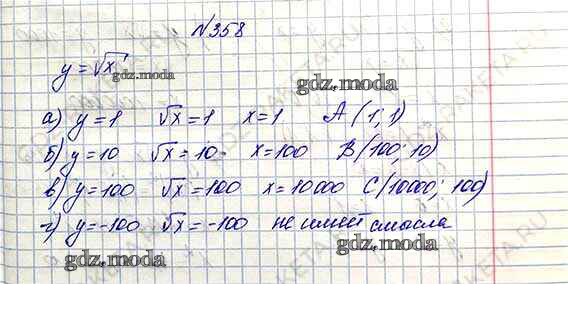 №358
y = √x
gdz.moda
gdz.moda
а) y = 1 √x = 1 x = 1 A (1; 1)
б) y = 10 √x = 10 x = 100 B (100; 10)
в) y = 100 √x = 100 x = 10000 C (10000; 100)
г) y = -100 √x = -100 не имеет смысла
gdz.moda
gdz.moda